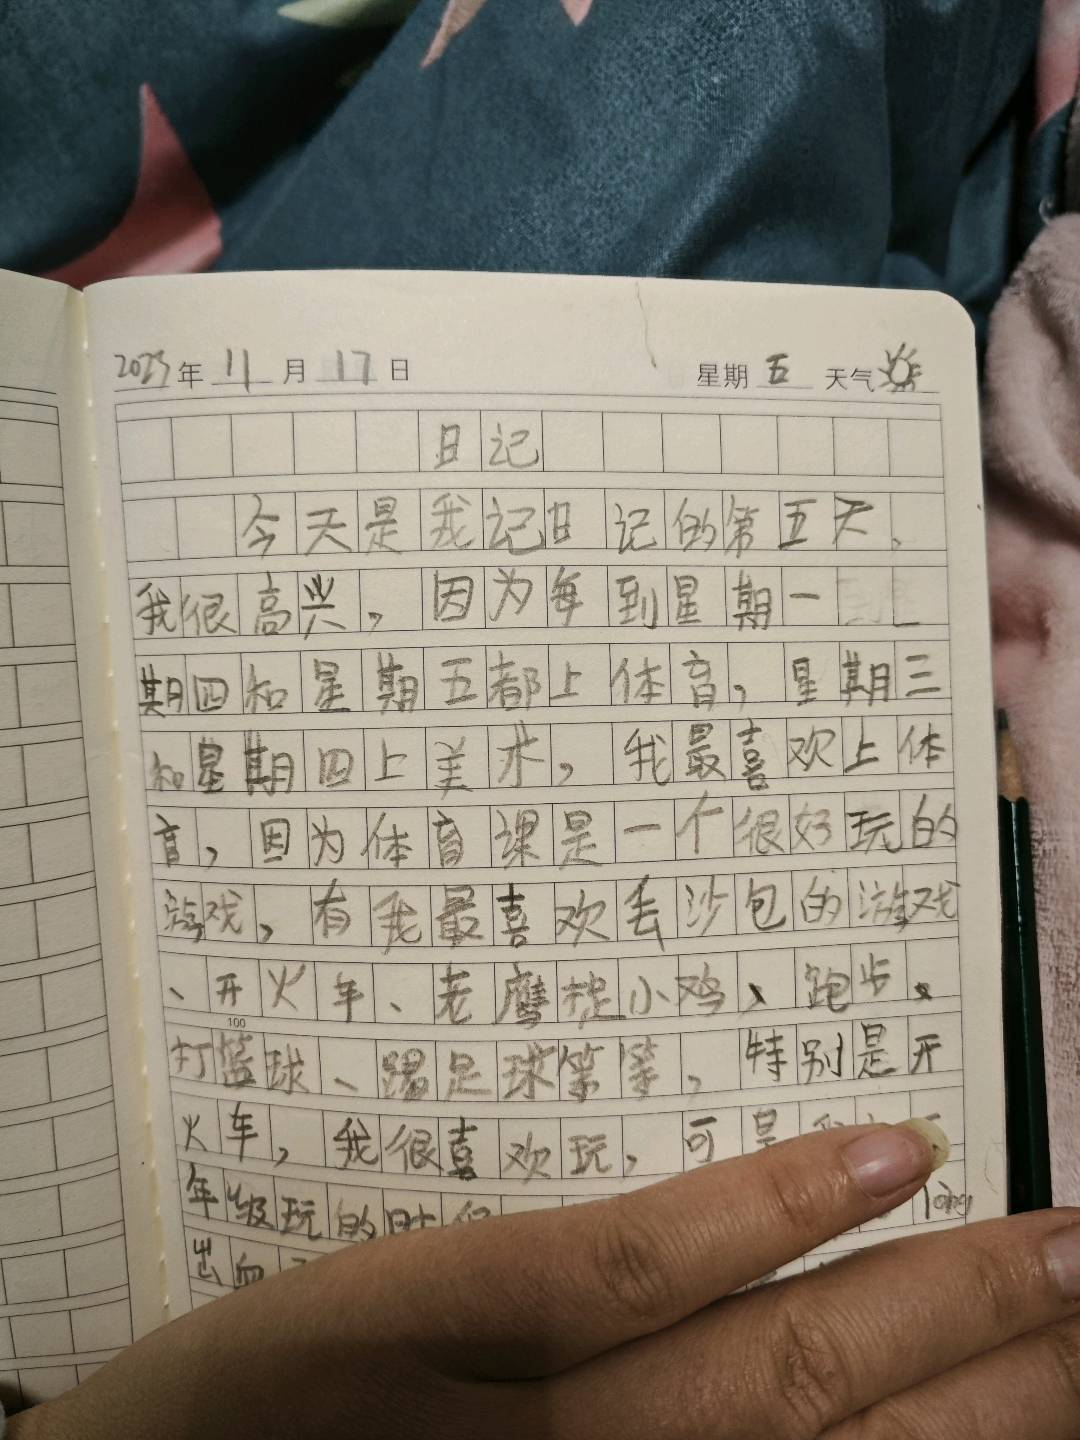 2023年 11月 17日 星期 五 天气
日记
今天是我记日记的第五天,
我很高兴,因为每到星期一
期四和星期五都上体育,星期三
和星期四上美术,我最喜欢上体
育,因为体育课是一个很好玩的
游戏,有我最喜欢丢沙包的游戏
、开火车、老鹰捉小鸡、跑步、
100
打篮球、踢足球等等,特别是开
火车,我很喜欢玩,可是
年级玩的时候
出血